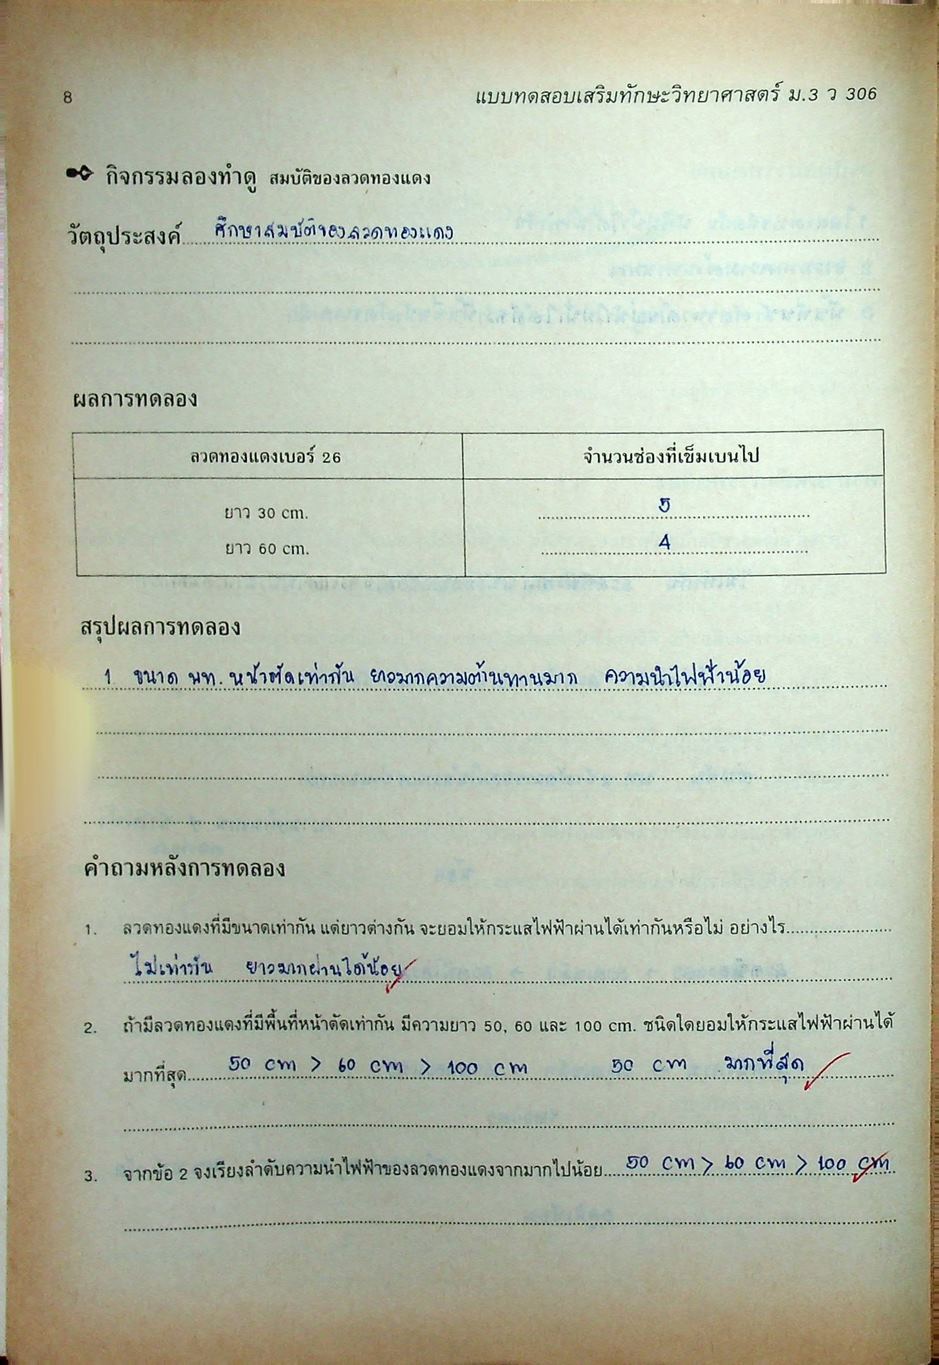 8
แบบทดสอบเสริมทักษะวิทยาศาสตร์ ม.3 ว 306
กิจกรรมลองทำดู สมบัติของลวดทองแดง
วัตถุประสงค์ ศึกษาสมบัติของลวดทองแดง
ผลการทดลอง
ลวดทองแดงเบอร์ 26 จำนวนช่องที่เข็มเบนไป
ยาว 30 cm. 5
ยาว 60 cm. 4
สรุปผลการทดลอง
1 ขนาด พท. หน้าตัดเท่ากัน ยาวมากความต้านทานมาก ความนำไฟฟ้าน้อย
คำถามหลังการทดลอง
1. ลวดทองแดงที่มีขนาดเท่ากัน แต่ยาวต่างกัน จะยอมให้กระแสไฟฟ้าผ่านได้เท่ากันหรือไม่ อย่างไร
ไม่เท่ากัน ยาวมากผ่านได้น้อย
2. ถ้ามีลวดทองแดงที่มีพื้นที่หน้าตัดเท่ากัน มีความยาว 50, 60 และ 100 cm. ชนิดใดยอมให้กระแสไฟฟ้าผ่านได้
มากที่สุด 50 cm > 60 cm > 100 cm 50 cm มากที่สุด
3. จากข้อ 2 จงเรียงลำดับความนำไฟฟ้าของลวดทองแดงจากมากไปน้อย 50 cm > 60 cm > 100 cm